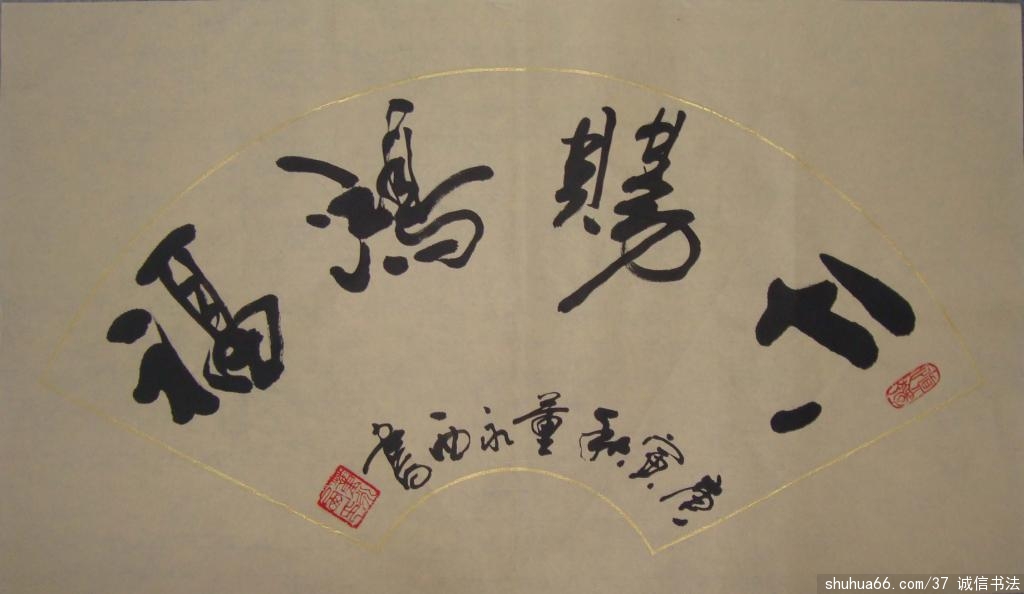 天賜鴻福
庚寅秋董永西書
shuhua66.com/37 诚信书法